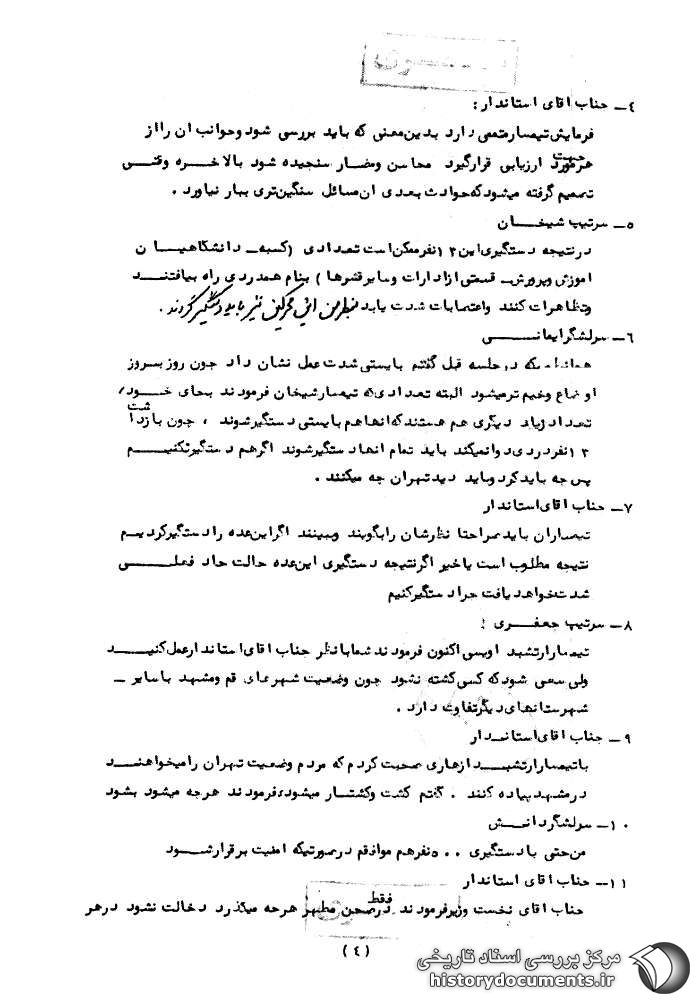 ٤ــ جناب اقای استاندار:
فرمایش تیمسار متعی دارد بدین معنی که باید بررسی شود وجوانب ان را از
هرجهت مورد ارزیابی قرارگیرد محاسن ومضار سنجیده شود بالاخره وقتی
تصمیم گرفته میشود که حوادث بعدی ان مسائل سنگین تری ببار نیاورد .
٥ــ سرتیپ شیخان
درنتیجه دستگیری این ١٣ نفر ممکن است تعدادی (کسبه ــ دانشگاهیان
اموزش وپرورش ــ قسمتی ازادارات وسایرقشرها) بنام همدردی راه بیافتند
وتظاهرات کنند واعتصابات شدت یابد بنظرمن این محرکین نیز باید دستگیر گردند .
٦ــ سرلشگر ایمانی
همانطوریکه درجلسه قبل گفتم بایستی شدت عمل نشان داد چون روز بروز
اوضاع وخیم ترمیشود البته تعدادی که تیمسار شیخان فرمودند بجای خود،
تعداد زیاد دیگری هم هستند که انها هم بایستی دستگیرشوند ، چون بازداشت
١٣ نفر دردی دوانمیکند باید تمام انها دستگیرشوند اگرهم دستگیرنکنیم
پس چه باید کرد وباید دید تهران چه میکند .
٧ــ جناب اقای استاندار
تیمساران باید صراحتا نظرشان رابگویند وببینند اگراین عده رادستگیرکردیم
نتیجه مطلوب است یاخیر اگرنتیجه دستگیری این عده حالت حاد فعلی
شدت خواهد یافت چرا دستگیرکنیم
٨ــ سرتیپ جعفری !
تیمسار ارتشبد اویسی اکنون فرمودند شما بانظر جناب اقای استاندار عمل کنید
ولی سعی شود که کسی کشته نشود چون وضعیت شهرهای قم ومشهد باسایر ــ
شهرستانهای دیگرتفاوت دارد .
٩ــ جناب اقای استاندار
باتیمسار ارتشبد ازهاری صحبت کردم که مردم وضعیت تهران رامیخواهند
درمشهد پیاده کنند . گفتم کشت وکشتار میشود، فرمودند هرچه میشود بشود
١٠ــ سرلشگر دانش
من حتی بادستگیری ٥٠٠ نفرهم موافقم درصورتیکه امنیت برقرارشود
١١ــ جناب اقای استاندار
جناب اقای نخست وزیر فرمودند فقط درصحن مطهر هرچه میگذرد دخالت نشود درهر
(٤)
مرکز بررسی اسناد تاریخی
historydocuments.ir